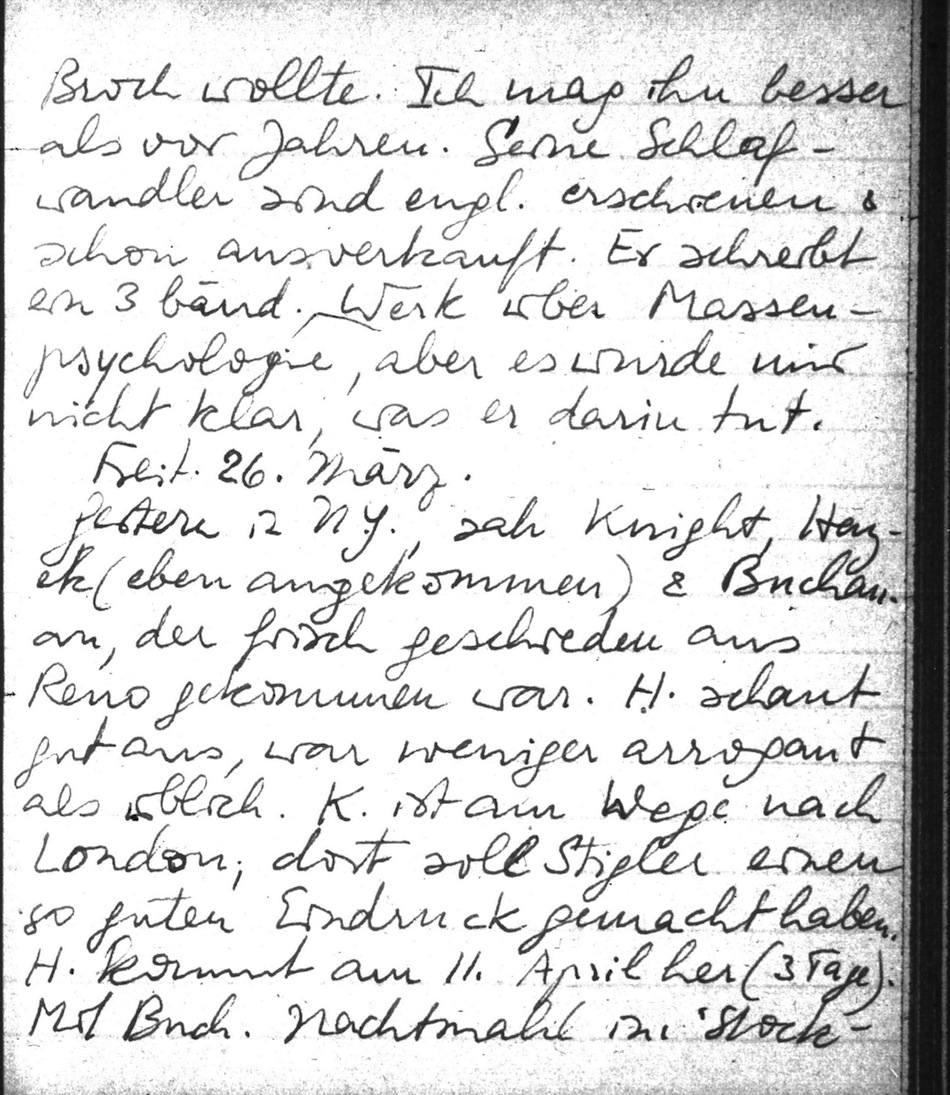 Broch wollte. Ich mag ihn besser
als vor Jahren. Seine Schlaf-
wandler sind engl. erschienen &
schon ausverkauft. Er schreibt
ein 3 bänd. Werk über Massen-
psychologie, aber es wurde mir
nicht klar, was er darin tut.
Freit. 26. März.
Gestern in NY., sah Knight, Hay-
ek (eben angekommen) & Buchan-
an, der frisch geschieden aus
Reno gekommen war. H. schaut
gut aus, war weniger arrogant
als üblich. K. ist am Wege nach
London; dort soll Stigler einen
so guten Eindruck gemacht haben.
H. kommt am 11. April her (3 Tage).
Mit Buch. Nachtmahl im 'Stock-